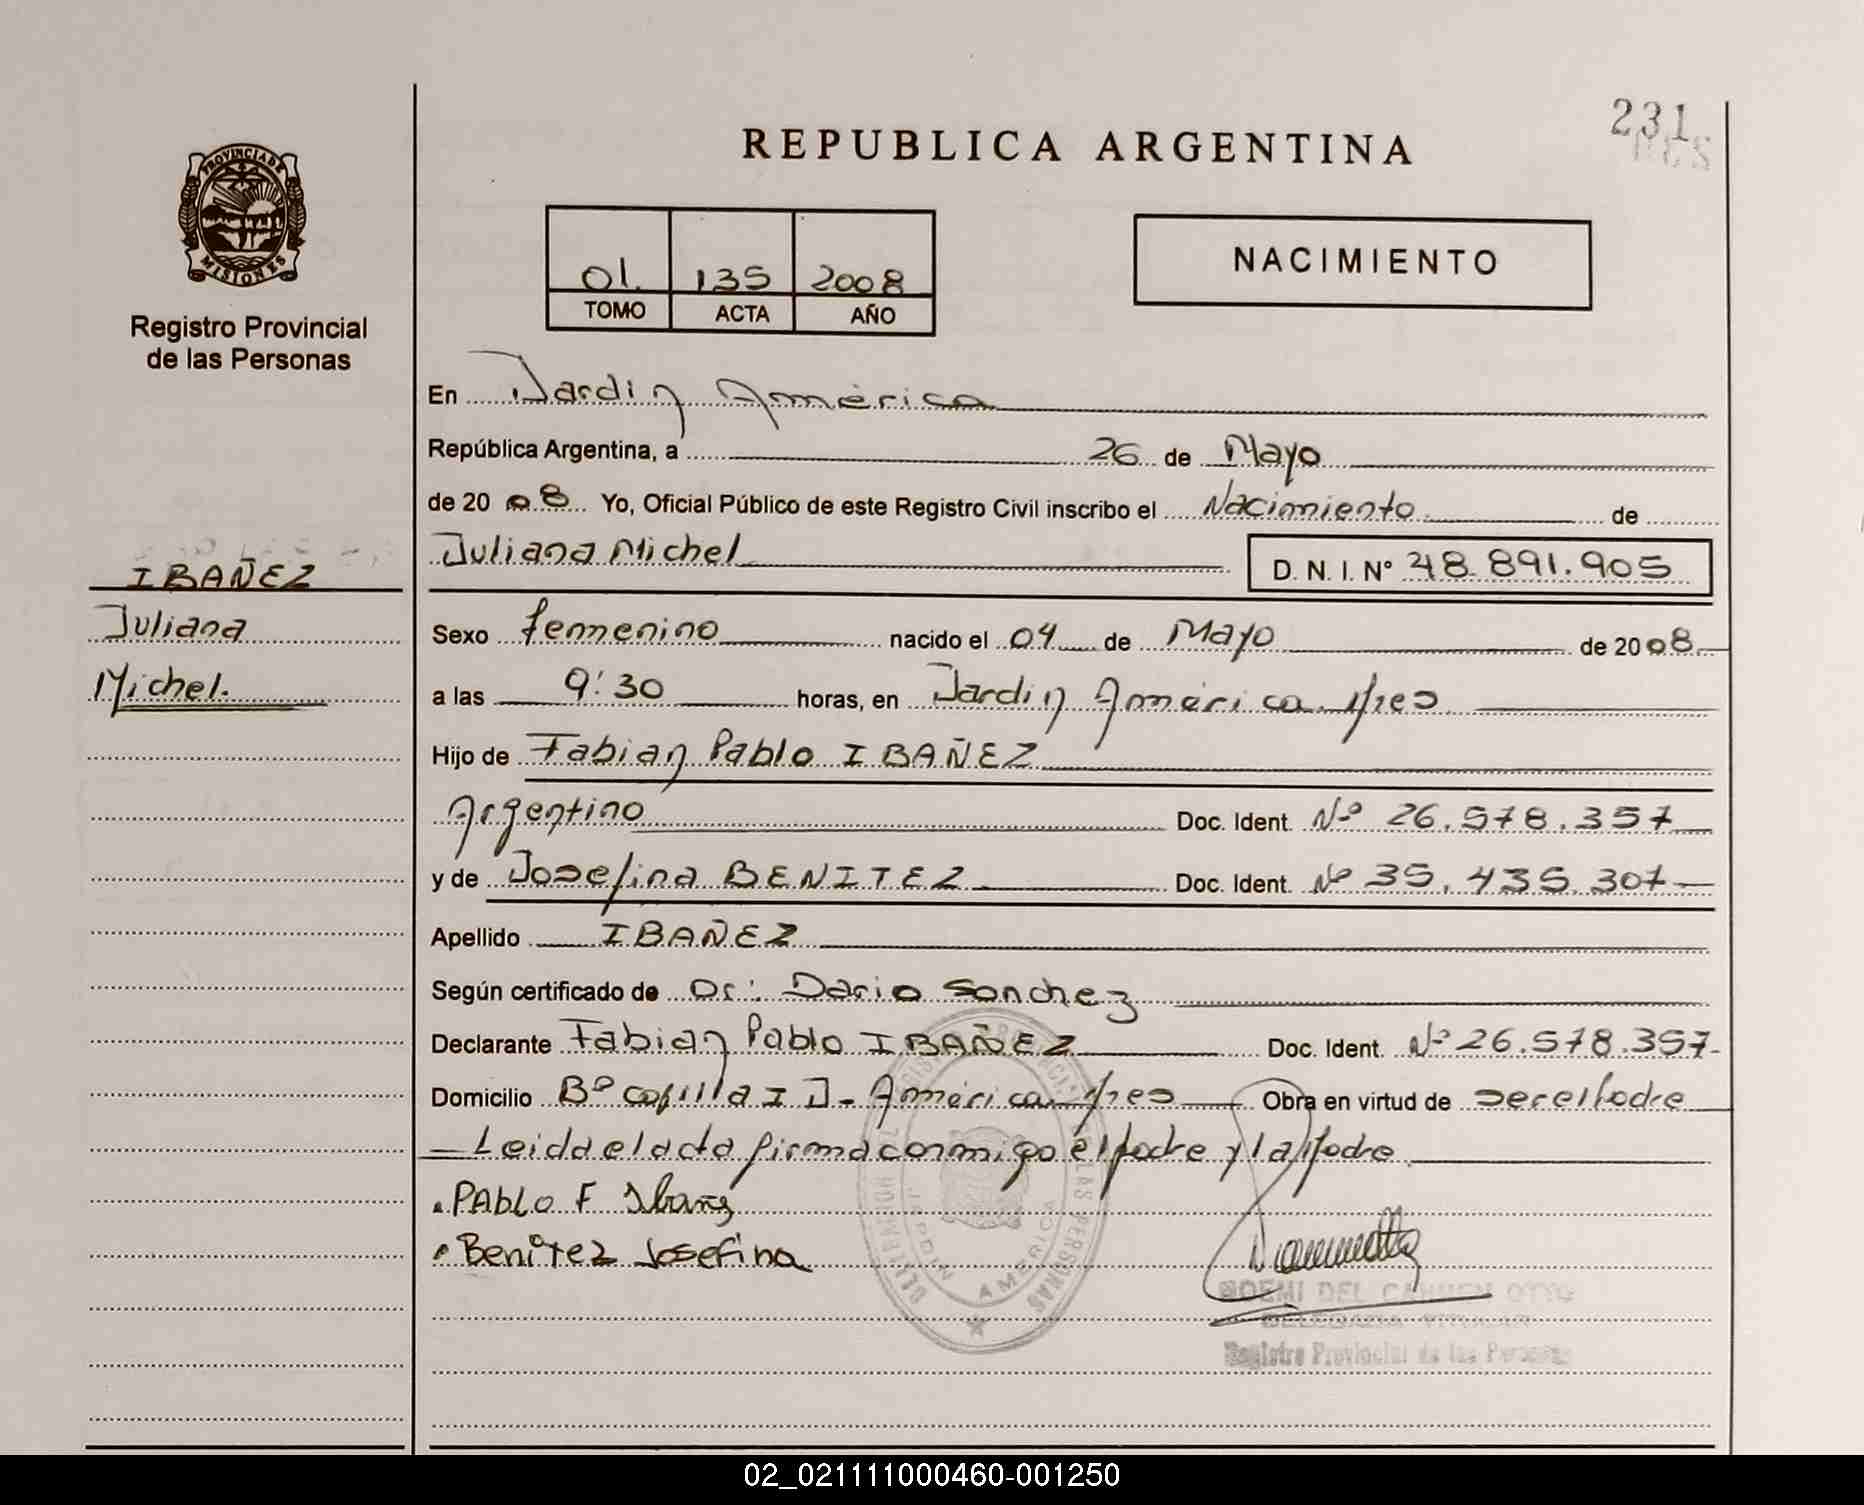 231
REPUBLICA ARGENTINA
PROVINCIA DE
MISIONES
Registro Provincial
de las Personas
01. 135 2008
TOMO ACTA AÑO
NACIMIENTO
En Jardin América
República Argentina, a 26 de Mayo
de 2008 Yo, Oficial Público de este Registro Civil inscribo el Nacimiento de
Juliana Michel D. N. I. N° 48.891.905
IBAÑEZ
Juliana
Michel.
Sexo femenino nacido el 04 de Mayo de 2008
a las 9:30 horas, en Jardin América
Hijo de Fabian Pablo IBAÑEZ
Argentino Doc. Ident. Nº 26.578.357
y de Josefina BENITEZ Doc. Ident. Nº 35.435.307
Apellido IBAÑEZ
Según certificado de Dr: Dario Sanchez
Declarante Fabian Pablo IBAÑEZ Doc. Ident. Nº 26.578.357
Domicilio Bº Capilla I J. América Obra en virtud de ser el Padre
Leida el acta firma conmigo el Padre y la Madre
PABLO F Ibañez
Benitez Josefina
JARDIN AMERICA
NOEMI DEL CARMEN OTTO
DELEGADA TITULAR
Registro Provincial de las Personas
02_021111000460-001250